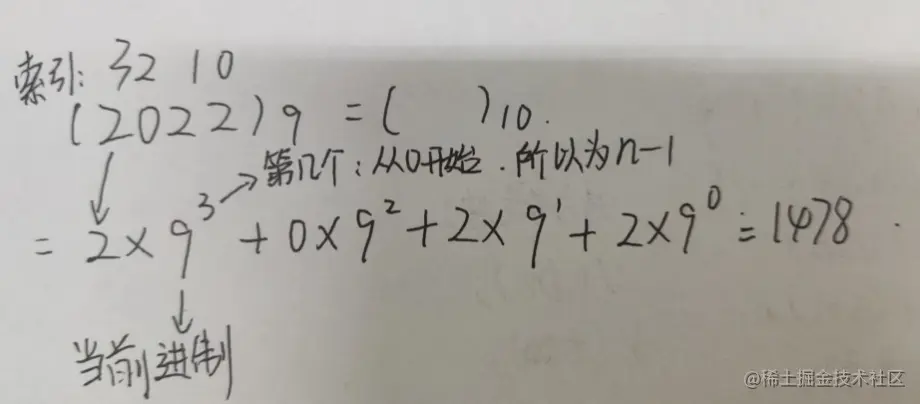 索引: 3 2 1 0
(2022)₉ = (      )₁₀.
第几个: 从0开始. 所以为n-1
= 2×9³ + 0×9² + 2×9¹ + 2×9⁰ = 1478.
当前进制
@稀土掘金技术社区